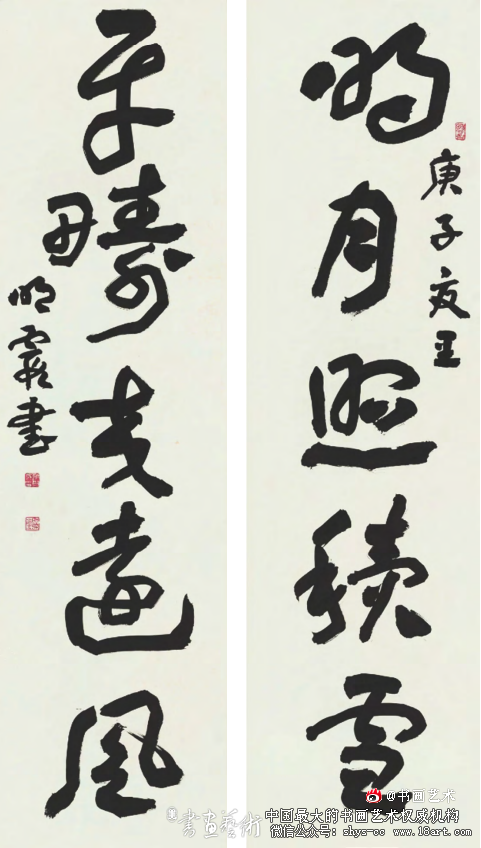 明月照積雪
庚子夏王
平疇交遠風
明霞書
@书画艺术
書画藝術
中国最大的书画艺术权威机构
微信公众号: shys-cc www.18art.com